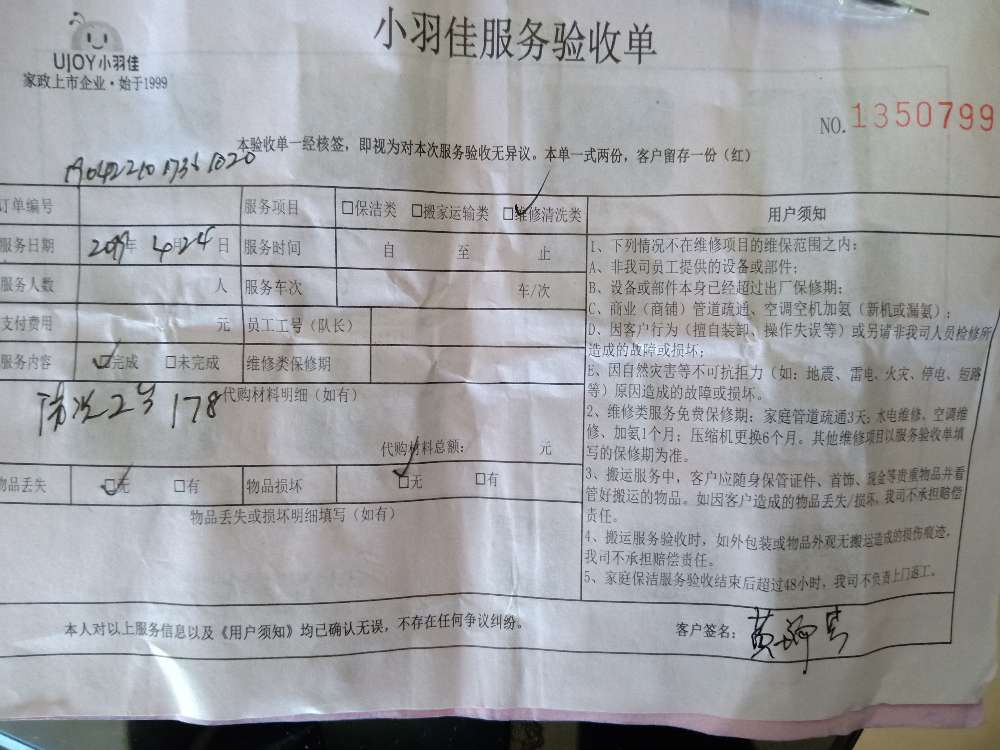 UJOY小羽佳
家政上市企业·始于1999
小羽佳服务验收单
NO.1350799
本验收单一经核签，即视为对本次服务验收无异议。本单一式两份，客户留存一份（红）
订单编号 服务项目 □保洁类 □搬家运输类 □维修清洗类
服务日期 年 4月24日 服务时间 自 至 止
服务人数 人 服务车次 车/次
支付费用 元 员工工号（队长）
服务内容 □完成 □未完成 维修类保修期
178 代购材料明细（如有）
代购材料总额： 元
物品丢失 □无 □有 物品损坏 □无 □有
物品丢失或损坏明细填写（如有）
用户须知
1、下列情况不在维修项目的维保范围之内：
A、非我司员工提供的设备或部件；
B、设备或部件本身已经超过出厂保修期；
C、商业（商铺）管道疏通、空调空机加氨（新机或漏氨）；
D、因客户行为（擅自装卸、操作失误等）或另请非我司人员检修所
造成的故障或损坏；
E、因自然灾害等不可抗拒力（如：地震、雷电、火灾、停电、短路
等）原因造成的故障或损坏。
2、维修类服务免费保修期：家庭管道疏通3天；水电维修、空调维
修、加氨1个月；压缩机更换6个月。其他维修项目以服务验收单填
写的保修期为准。
3、搬运服务中，客户应随身保管证件、首饰、现金等贵重物品并看
管好搬运的物品。如因客户造成的物品丢失/损坏，我司不承担赔偿
责任。
4、搬运服务验收时，如外包装或物品外观无搬运造成的损伤痕迹，
我司不承担赔偿责任。
5、家庭保洁服务验收结束后超过48小时，我司不负责上门返工。
本人对以上服务信息以及《用户须知》均已确认无误，不存在任何争议纠纷。
客户签名：